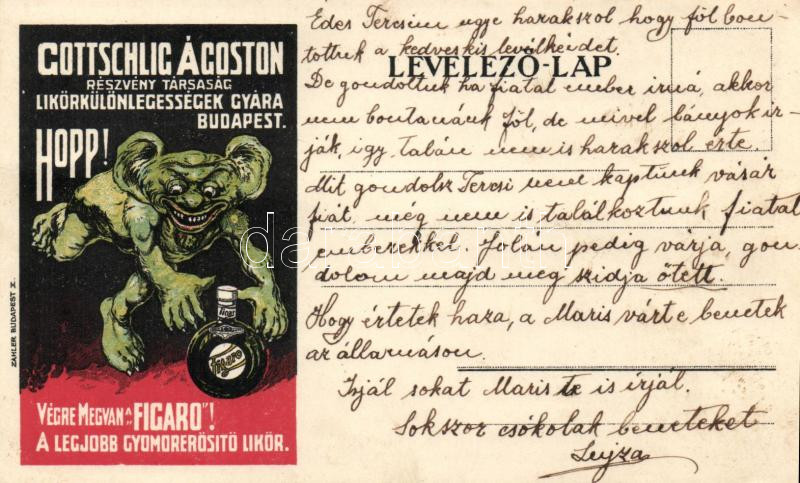 GOTTSCHLIG ÁGOSTON
RÉSZVÉNY TÁRSASÁG
LIKÖRKÜLÖNLEGESSÉGEK GYÁRA
BUDAPEST.
HOPP!
FIGARO
ZAHLER BUDAPEST X.
VÉGRE MEGVAN A „FIGARO"!
A LEGJOBB GYOMORERŐSITŐ LIKŐR.
LEVELEZŐ-LAP
Édes Tercsim ugye harakszol hogy föl bon
tottuk a kedves kis levélkéidet.
De gondoltuk ha fiatal ember irná, akkor
nem bontanánk föl, de mivel lányok ir-
ják, igy talán nem is harakszol érte.
Mit gondolsz Tercsi nem kaptunk vásár
fiát, még nem is találkoztunk fiatal
emberekkel. Jolán pedig várja, gon
dolom majd meg szidja őtett.
Hogy értetek haza, a Maris várt e benetek
az állomáson.
Irjál sokat Maris is irjál.
Sokszor csókolak beneteket
Lujza
darabanth.com